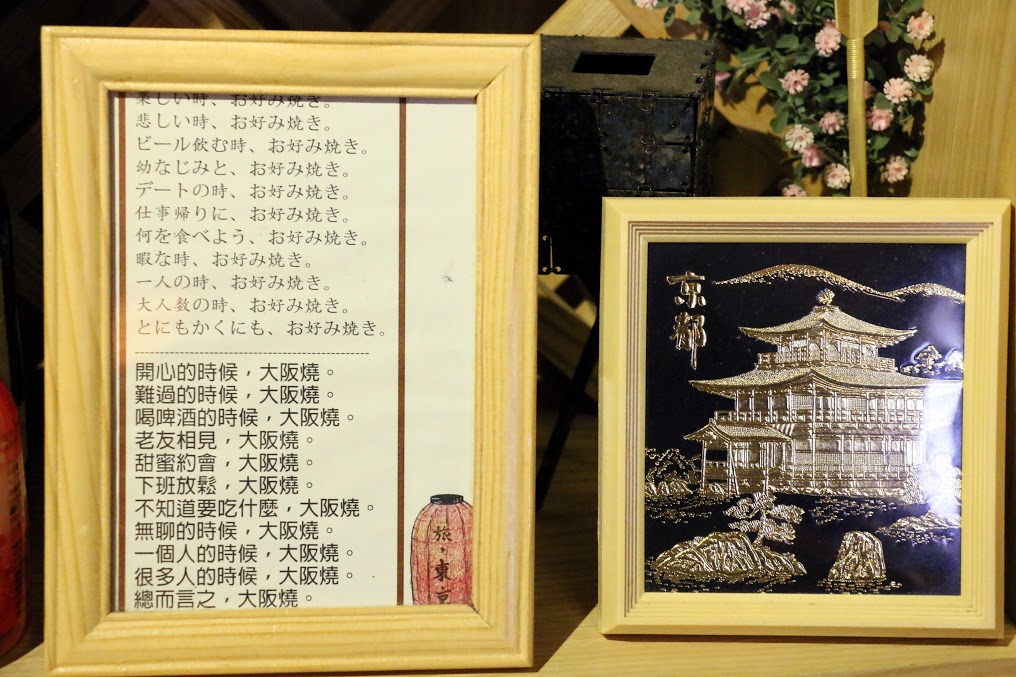 楽しい時、お好み焼き。
悲しい時、お好み焼き。
ビール飲む時、お好み焼き。
幼なじみと、お好み焼き。
デートの時、お好み焼き。
仕事帰りに、お好み焼き。
何を食べよう、お好み焼き。
暇な時、お好み焼き。
一人の時、お好み焼き。
大人数の時、お好み焼き。
とにもかくにも、お好み焼き。
開心的時候，大阪燒。
難過的時候，大阪燒。
喝啤酒的時候，大阪燒。
老友相見，大阪燒。
甜蜜約會，大阪燒。
下班放鬆，大阪燒。
不知道要吃什麼，大阪燒。
無聊的時候，大阪燒。
一個人的時候，大阪燒。
很多人的時候，大阪燒。
總而言之，大阪燒。
旅東京
京都